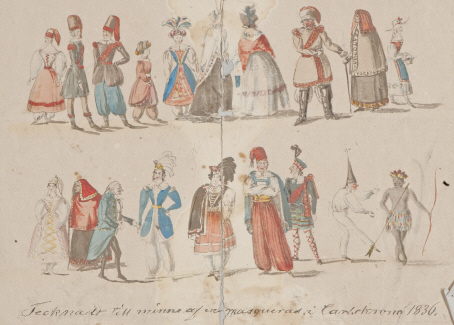 Tecknadt till minne af en masquerad, i Carlskrona, 1836.